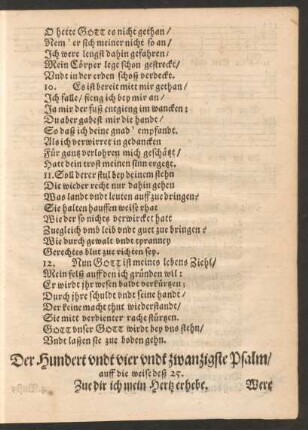 O hette GOTT es nicht gethan/
Nem' er sich meiner nicht so an/
Ich were lengst dahin gefahren/
Mein Cörper lege schon gestreckt/
Vndt in der erden schoß verdeckt.
10. Es ist bereit mitt mir gethan/
Ich falle/ fieng ich bey mir an/
Ja mir der fuß entgieng im wancken;
Du aber gabest mir die handt/
So daß ich deine gnad' empfandt.
Als ich verwirret in gedancken
Für gantz verlohren mich geschätzt/
Hatt dein trost meinen sinn ergetzt.
11. Soll derer stul bey deinem stehn
Die wieder recht nur dahin gehen
Was landt vndt leuten auff zue bringen?
Sie halten hauffen weise rhat
Wie der so nichts verwircket hatt
Zuegleich vmb leib vndt guet zue bringen?
Wie durch gewalt vndt tyranney
Gerechtes blut zue richten sey.
12. Nun GOTT ist meines lebens Ziehl/
Mein felß auff den ich gründen wil:
Er wirdt jhr wesen baldt verkürtzen;
Durch jhre schuldt vndt seine handt/
Der keine macht thut wiederstandt/
Sie mitt verdienter rache stürtzen.
GOTT vnser GOTT wirdt bey vns stehn/
Vndt laßen sie zue boden gehn.
Der Hundert vndt vier vndt zwanzigste Psalm/
auff die weise deß 25.
Zue dir ich mein Hertz erhebe.
Were